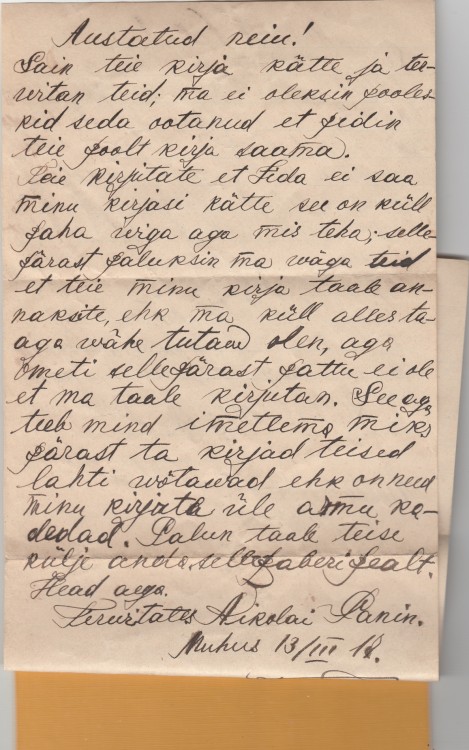 Austatud neiu!
Sain teie kirja kätte ja ter-
witan teid; ma ei oleksin pooles-
kid seda ootanud et pidin
teie poolt kirja saama.
Teie kirjutate et Lida ei saa
minu kirjasi kätte see on küll
paha wiga aga mis teha; selle
pärast paluksin ma wäga teid
et teie minu kirja taale an-
naksite, ehk ma küll alles ta-
aga wähe tutaw olen, aga
ometi selle pärast pattu ei ole
et ma taale kirjutan. See aga
teeb mind imetlema miks
pärast ta kirjad teised
lahti wõtawad ehk on need
minu kirjata üle armu ka-
dedad. Palun taale teise
külje anda selle paberi pealt.
Head aega.
Terwitates Nikolai Panin.
Muhus 13/III